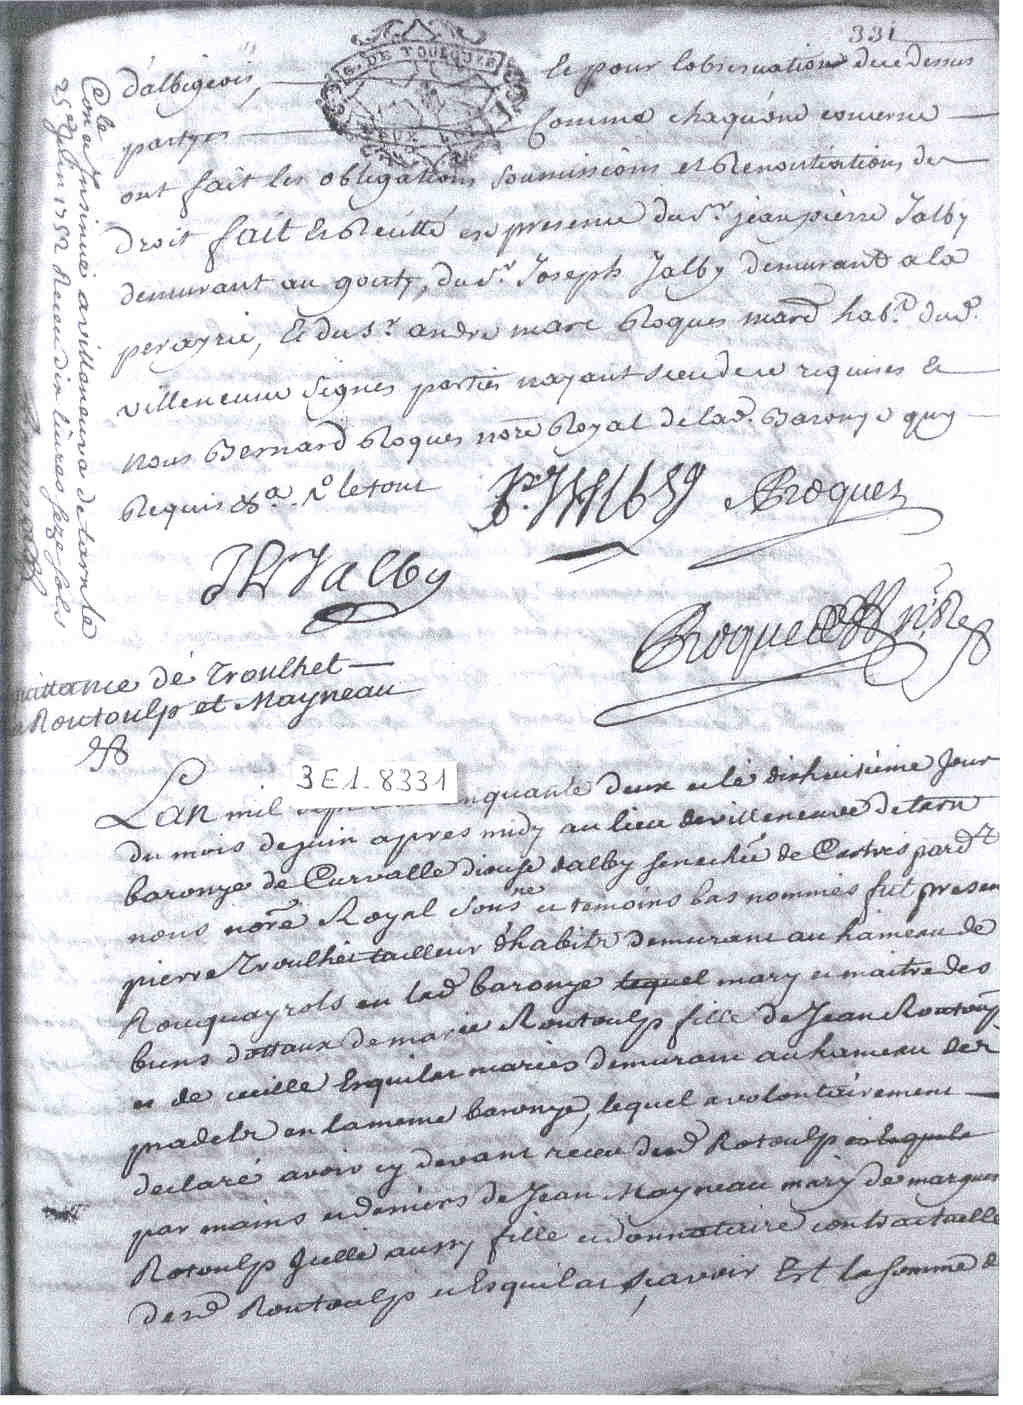 331
d'albigeois, — G. DE TOULOUSE Et pour lobservation de ce dessus
partyes — DEUX — Comme chaquéune concerne —
ont fait les obligations soumissions et Renontiations de —
Droit fait et Recitté en presence du sr. jean pierre Jalby
demurant au gouty, du sr. Joseph Jalby demurant a la
perayrie, Et du sr. andre marc Roques mard. habt. dud.
villeneuve signes parties nayant sceu de ce requises Et —
Nous Bernard Roques nore Royal de lad. Baronye quy —
Requis &a. Ro. le tout
Jalby ARoques
JHJalby
Roques nre
Con.le et Insinué a villeneuve de tarn le
25e juin 1752 Receu dix livres seze sols
quittance de Troulhet —
a Routoulp et Mayneau
Lan mil 3E1-8331 nquante deux et le dixhuitieme Jour
Du mois de juin apres midy au lieu de villeneuve de tarn
baronye de Curvalle dioese dalby senechée de Castres pard.
nous nore Royal sousne et temoins bas nommés fut present
pierre Troulhet tailleur d'habits demurant au hameau de
Rouquayrols en lad baronye lequel mary et maitre des
biens dottaux de marie Routoulp fille de Jean Routoulp
et de cecille Esquilat mariés demurant au hameau des
pradels en la meme baronye, lequel a volontairement —
declaré avoir cy devant receu dud Rotoulp
par mains et deniers de Jean Mayneau mary de margueri
Rotoulp Icelle aussy fille et donnataire contractuelle
desd Routoulp et Esquilat scavoir Est la somme de